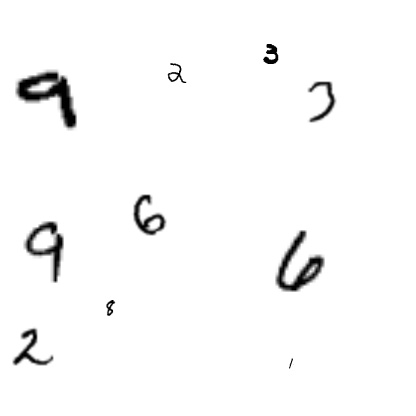 9 2 3 3
9 6 6
2 8 1